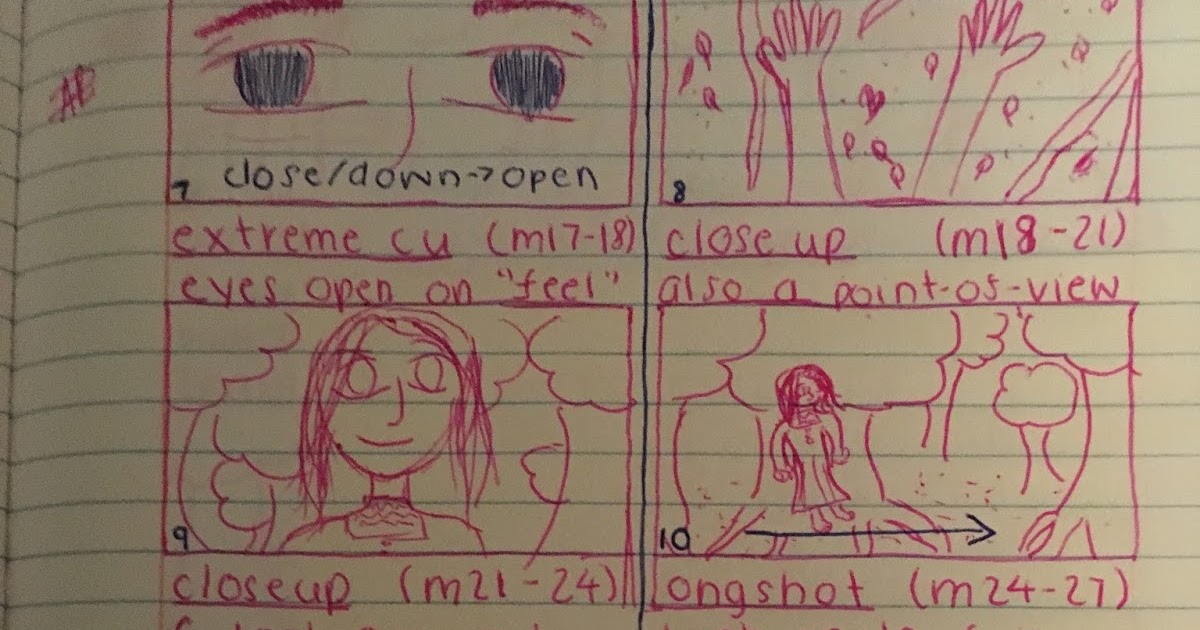 AB
close/down->open
7
8
extreme cu (m17-18)
eyes open on "feel"
close up (m18-21)
also a point-of-view
9
10
closeup (m21-24)
longshot (m24-27)